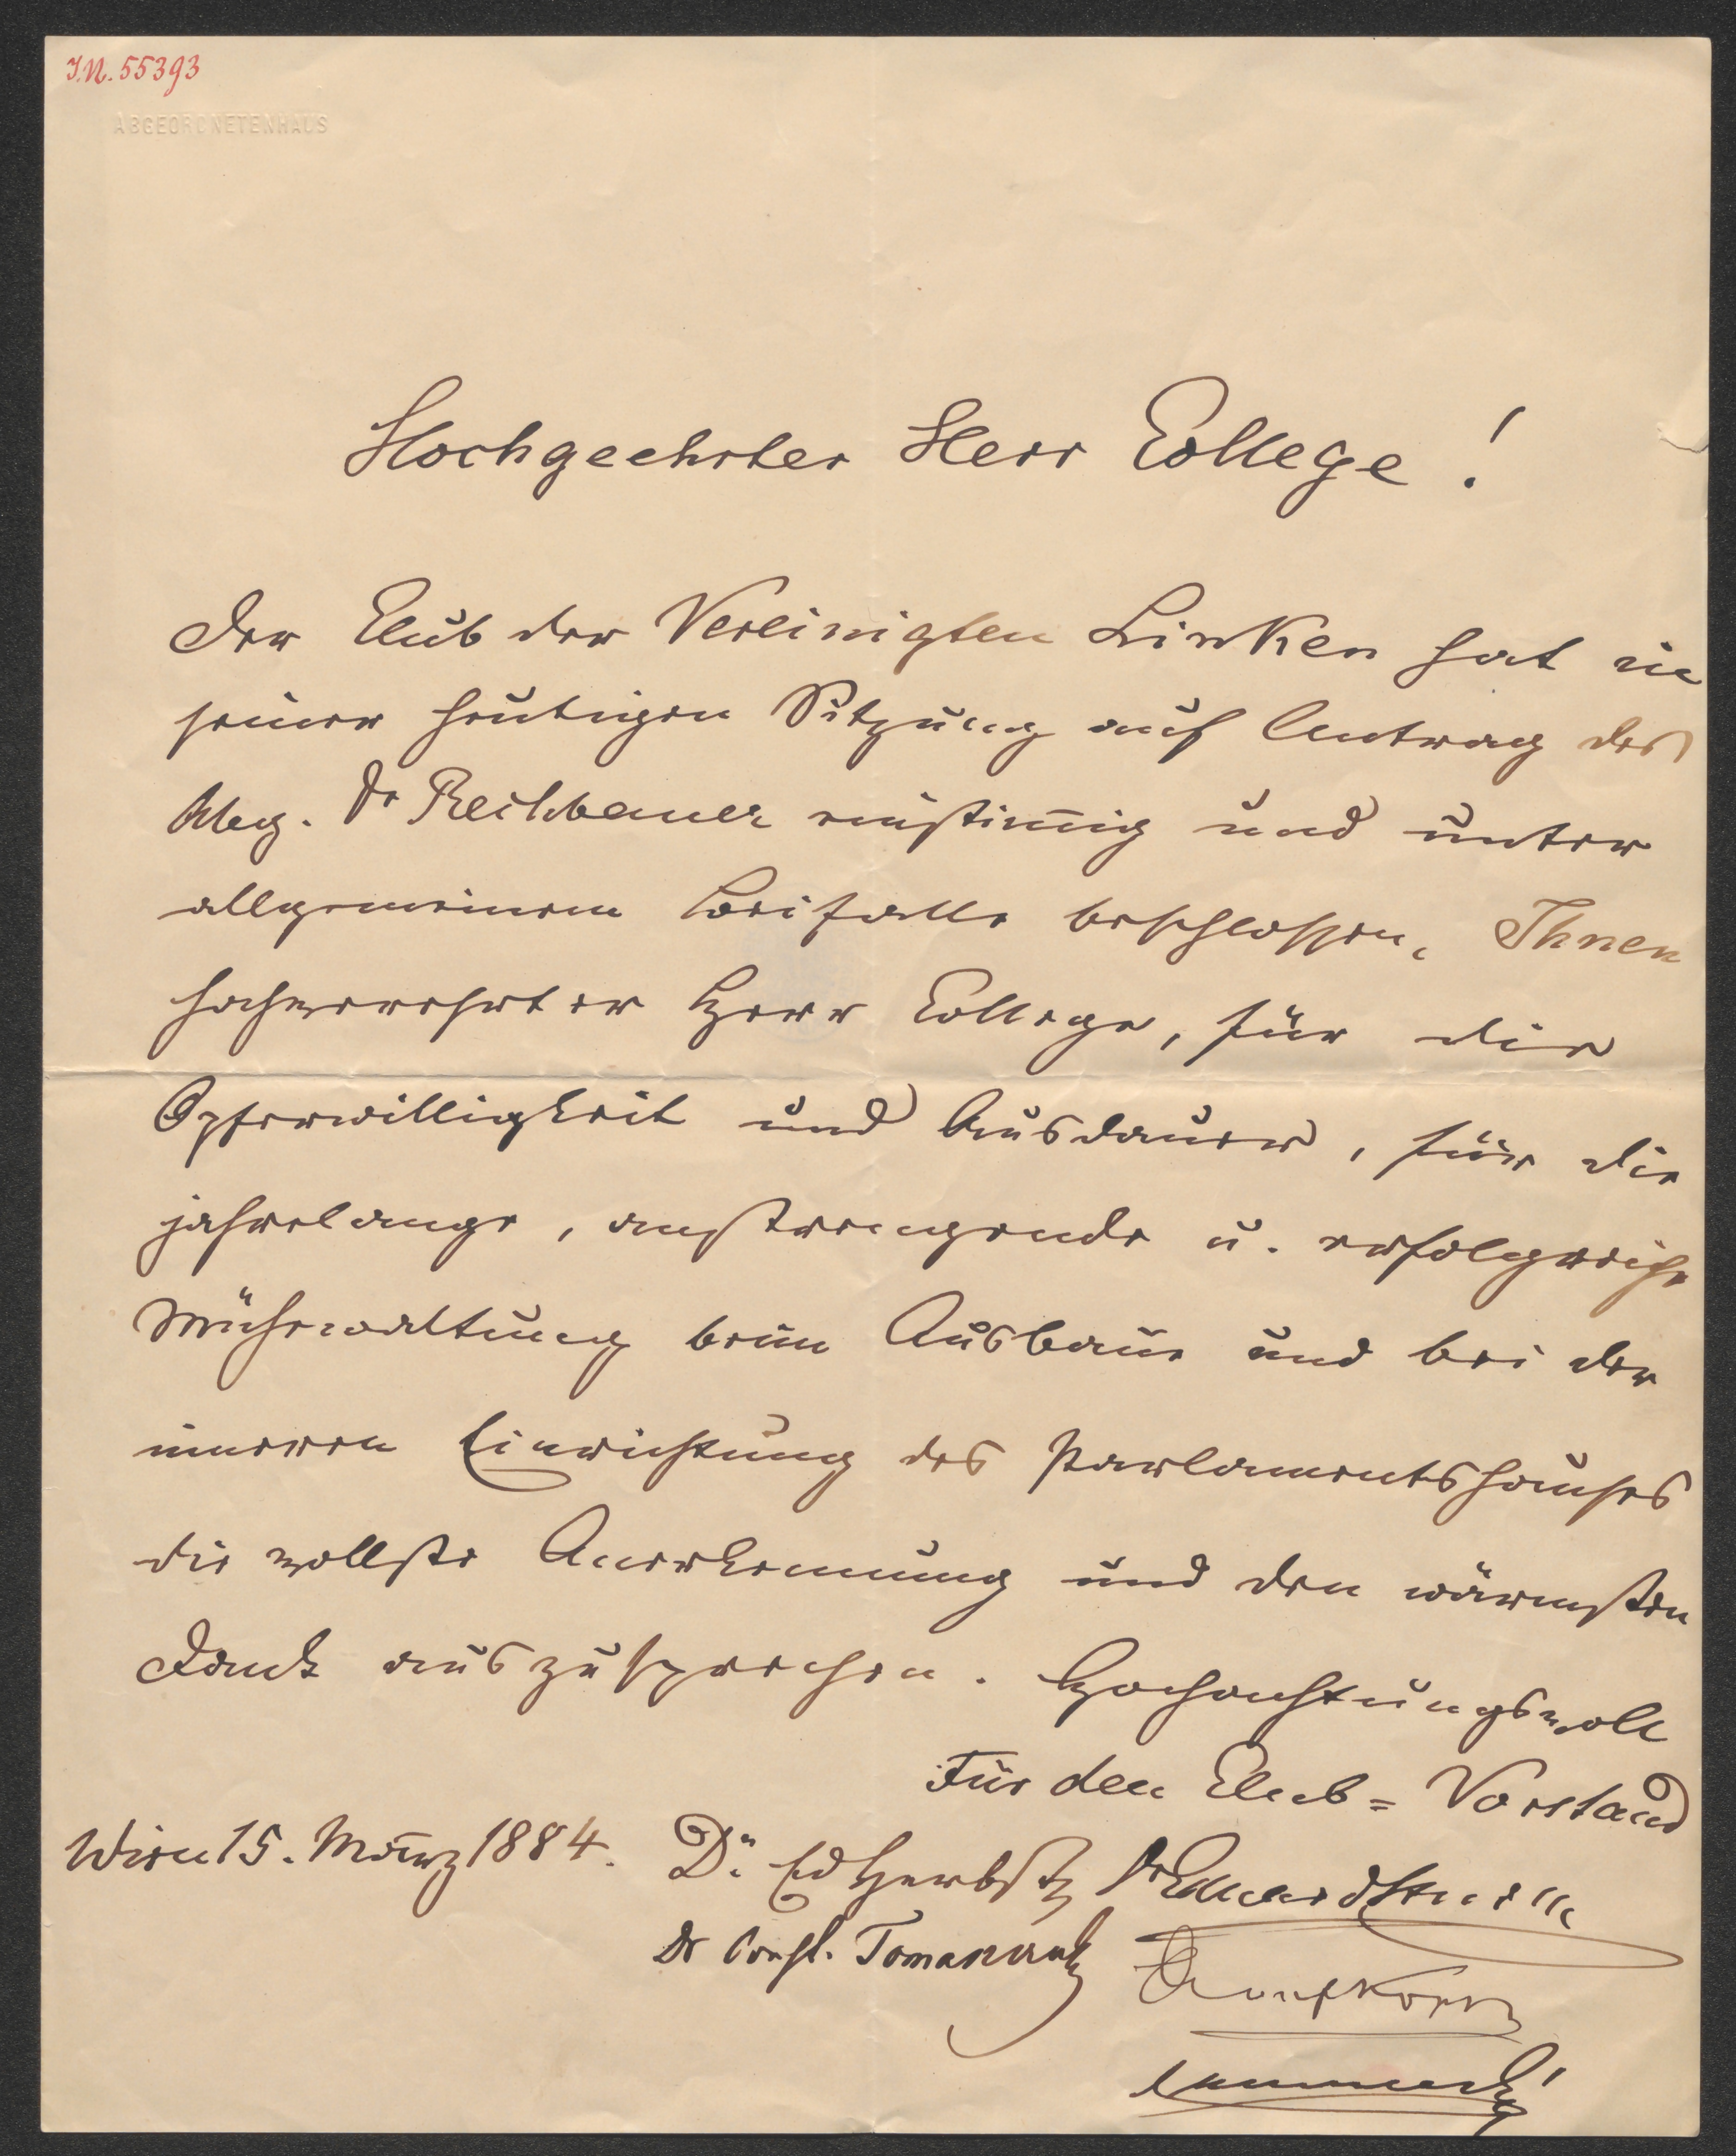 J.N. 55393
ABGEORDNETENHAUS
Hochgeehrter Herr College!
Der Club der Vereinigten Linken hat in
seiner heutigen Sitzung auf Antrag des
Abg. Dr Rechbauer einstim̅ig und unter
allgemeinem Beifalle beschlossen, Ihnen
hochverehrter Herr College, für die
Opferwilligkeit und Ausdauer, für die
jahrelange, anstrengende u. erfolgreiche
Mühewaltung beim Ausbaue und bei der
inneren Einrichtung des Parlamentshauses
die vollste Anerkennung und den wärmsten
Dank auszusprechen. Hochachtungsvoll
Für den Club=Vorstand
Wien 15. März 1884. Dr. Ed Herbst Dr Eduard Sturm
Dr Const. Tomaszczuk Kopp